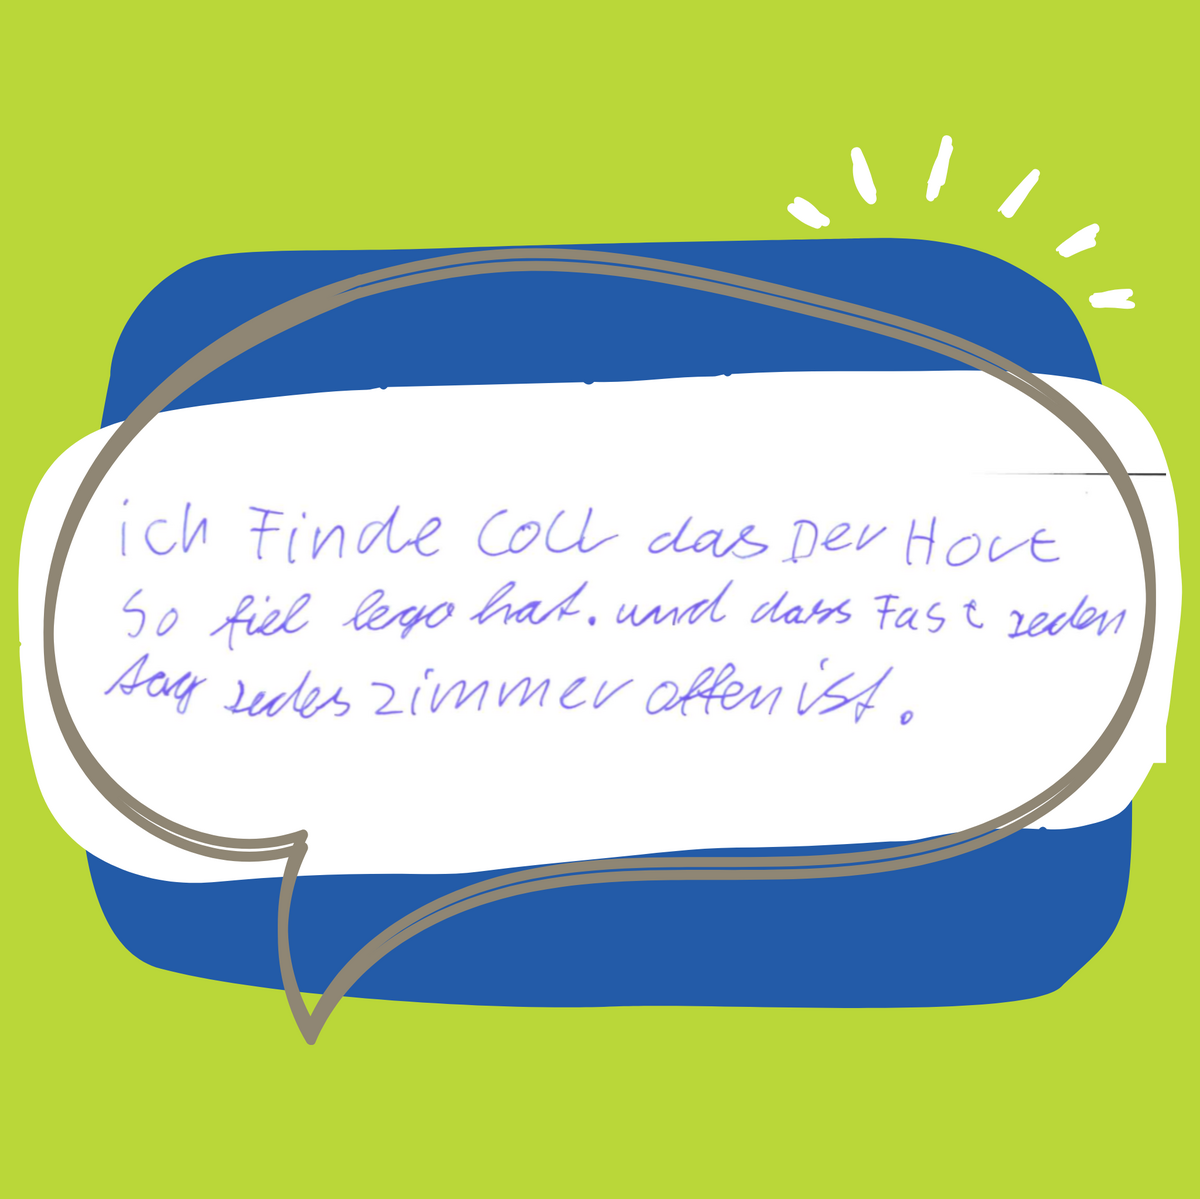 ich Finde Coll das Der Hort
So fiel lego hat. und dass Fast jeden
tag jedes zimmer offen ist.